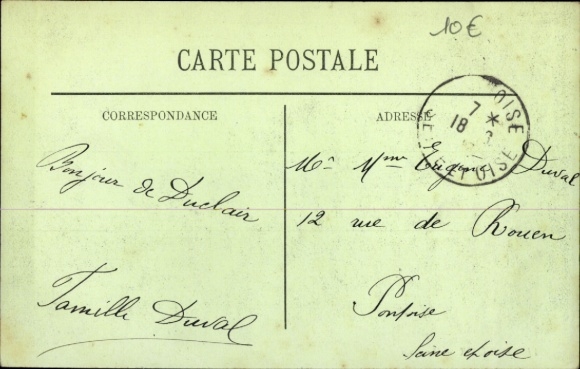 10€
CARTE POSTALE
CORRESPONDANCE
ADRESSE
7 *
18
OISE
SEINE ET OISE
Bonjour de Duclair
Famille Duval
Mr Mme Eugène Duval
12 rue de Rouen
Pontoise
Seine et oise